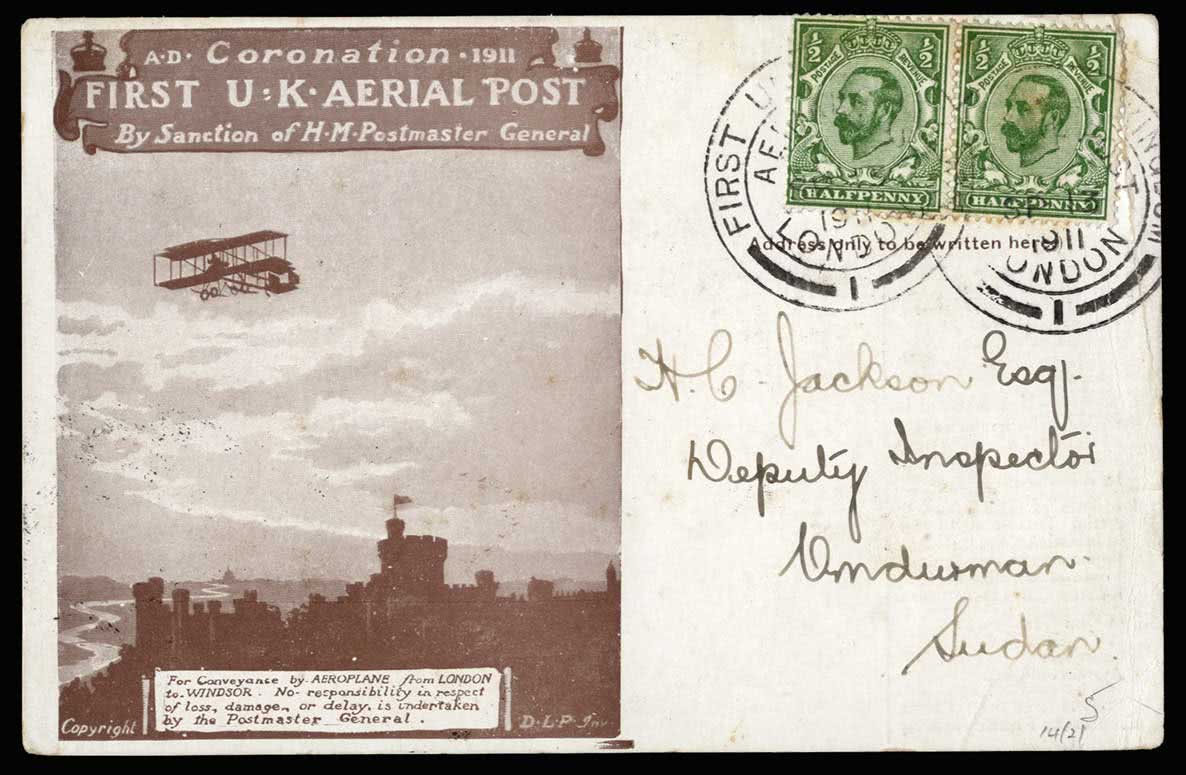 A·D· Coronation · 1911
FIRST U:K·AERIAL POST
By Sanction of H·M·Postmaster General
For Conveyance by AEROPLANE from LONDON
to WINDSOR. No responsibility in respect
of loss, damage, or delay, is undertaken
by the Postmaster General.
Copyright
D·L·P·Inv
½ ½
POSTAGE REVENUE
HALFPENNY
½ ½
POSTAGE REVENUE
HALFPENNY
FIRST U
AE
1911
LONDON
1
INGDOM
ST
SP
1911
ONDON
1
Address only to be written here
H. C. Jackson Esq.
Deputy Inspector
Omdurman.
Sudan.
5
14/21